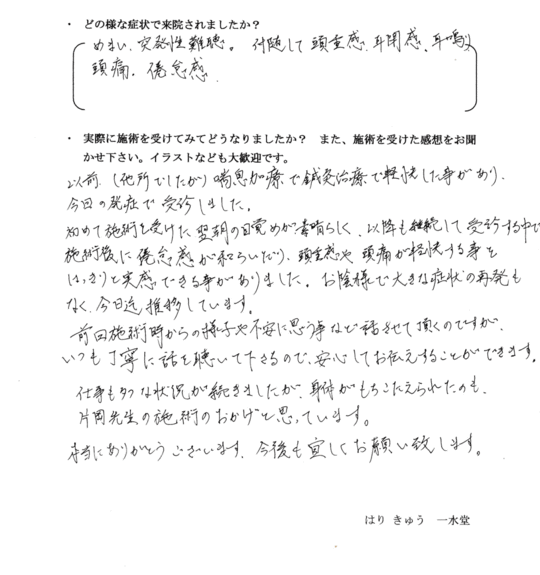 ・ どの様な症状で来院されましたか？
めまい、突発性難聴。付随して頭重感、耳閉感、耳鳴り
頭痛、倦怠感
・ 実際に施術を受けてみてどうなりましたか？ また、施術を受けた感想をお聞
かせ下さい。イラストなども大歓迎です。
以前、(他所でしたが)喘息加療で鍼灸治療で軽快した事があり、
今回の発症で受診しました。
初めて施術を受けた翌朝の目覚めが素晴らしく、以降も継続して受診する中で
施術後に倦怠感が和らいだり、頭重感や頭痛が軽快する事を
はっきりと実感できる事がありました。お陰様で大きな症状の再発も
なく、今日迄推移しています。
前回施術時からの様子や不安に思う事など話させて頂くのですが、
いつも丁寧に話を聴いて下さるので、安心してお伝えすることができます。
仕事もタフな状況が続きましたが、身体がもちこたえられたのも、
片岡先生の施術のおかげと思っています。
本当にありがとうございます。今後も宜しくお願い致します。
はり きゅう 一水堂